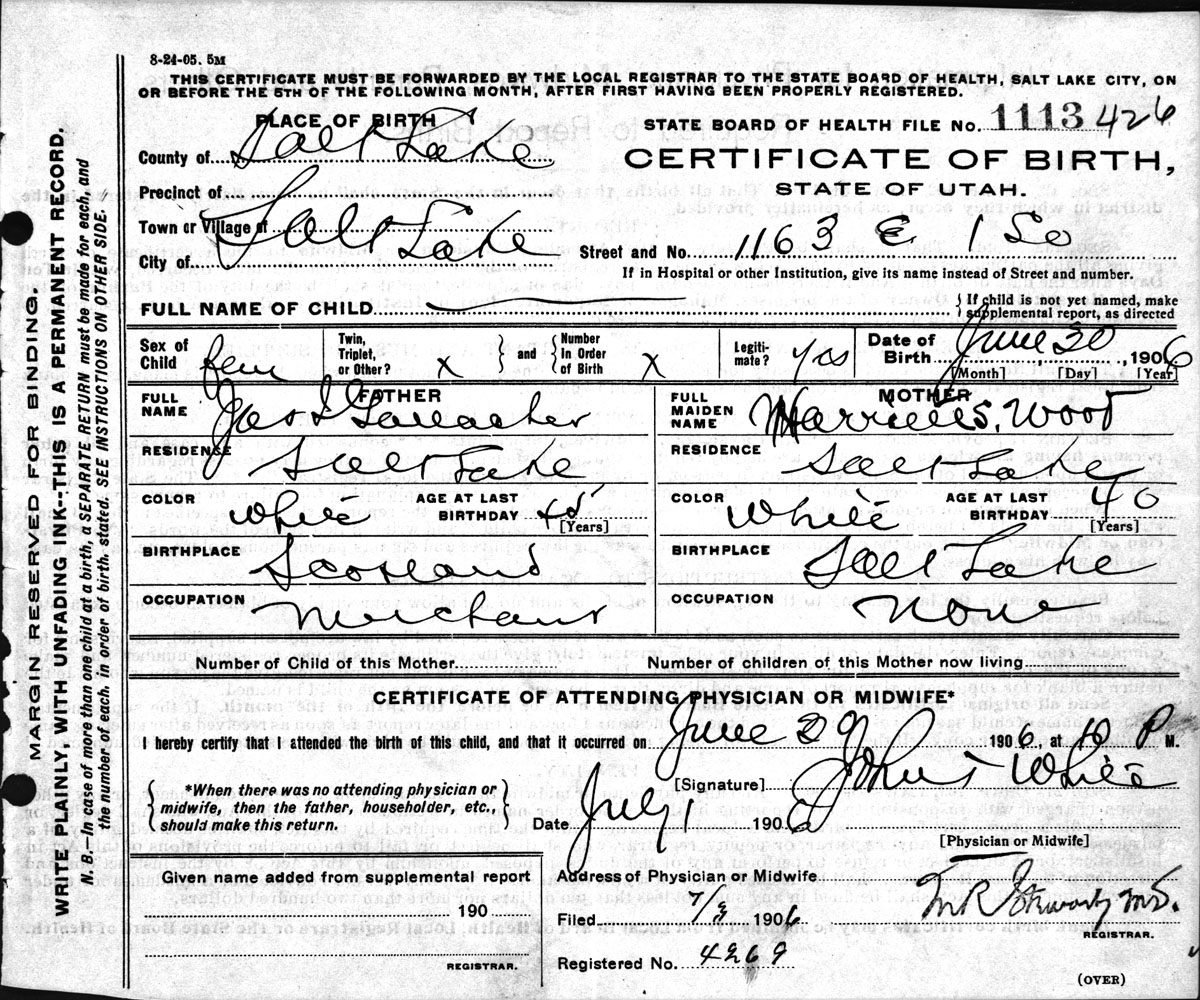 8-24-05. 5M
THIS CERTIFICATE MUST BE FORWARDED BY THE LOCAL REGISTRAR TO THE STATE BOARD OF HEALTH, SALT LAKE CITY, ON
OR BEFORE THE 5TH OF THE FOLLOWING MONTH, AFTER FIRST HAVING BEEN PROPERLY REGISTERED.
PLACE OF BIRTH
STATE BOARD OF HEALTH FILE No. 1113 426
County of Salt Lake
CERTIFICATE OF BIRTH,
Precinct of
STATE OF UTAH.
Town or Village of
City of Salt Lake
Street and No. 1163 E 1 So
If in Hospital or other Institution, give its name instead of Street and number.
FULL NAME OF CHILD
If child is not yet named, make
supplemental report, as directed
Sex of Child fem
Twin, Triplet, or Other? x
and Number In Order of Birth x
Legiti-mate? Yes
Date of Birth June 20, 1906
[Month] [Day] [Year]
FATHER
FULL NAME Jas Gallacher
RESIDENCE Salt Lake
COLOR White
AGE AT LAST BIRTHDAY 45
[Years]
BIRTHPLACE Scotland
OCCUPATION Merchant
MOTHER
FULL MAIDEN NAME Harriet S. Wood
RESIDENCE Salt Lake
COLOR White
AGE AT LAST BIRTHDAY 40
[Years]
BIRTHPLACE Salt Lake
OCCUPATION None
Number of Child of this Mother
Number of children of this Mother now living
CERTIFICATE OF ATTENDING PHYSICIAN OR MIDWIFE*
I hereby certify that I attended the birth of this child, and that it occurred on June 29 1906, at 10 P M.
*When there was no attending physician or
midwife, then the father, householder, etc.,
should make this return.
[Signature] White
Date July 1906
[Physician or Midwife]
Given name added from supplemental report
Address of Physician or Midwife
190
Filed 7/3 1906
REGISTRAR.
REGISTRAR.
Registered No. 4269
(OVER)
MARGIN RESERVED FOR BINDING.
WRITE PLAINLY, WITH UNFADING INK--THIS IS A PERMANENT RECORD.
N. B.—In case of more than one child at a birth, a SEPARATE RETURN must be made for each, and
the number of each, in order of birth, stated. SEE INSTRUCTIONS ON OTHER SIDE.